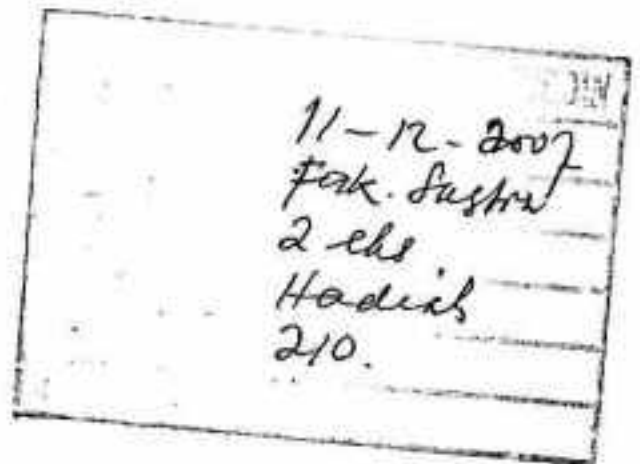 11-12-2007
Fak. Sastra
2 eks.
Hadiah
210.